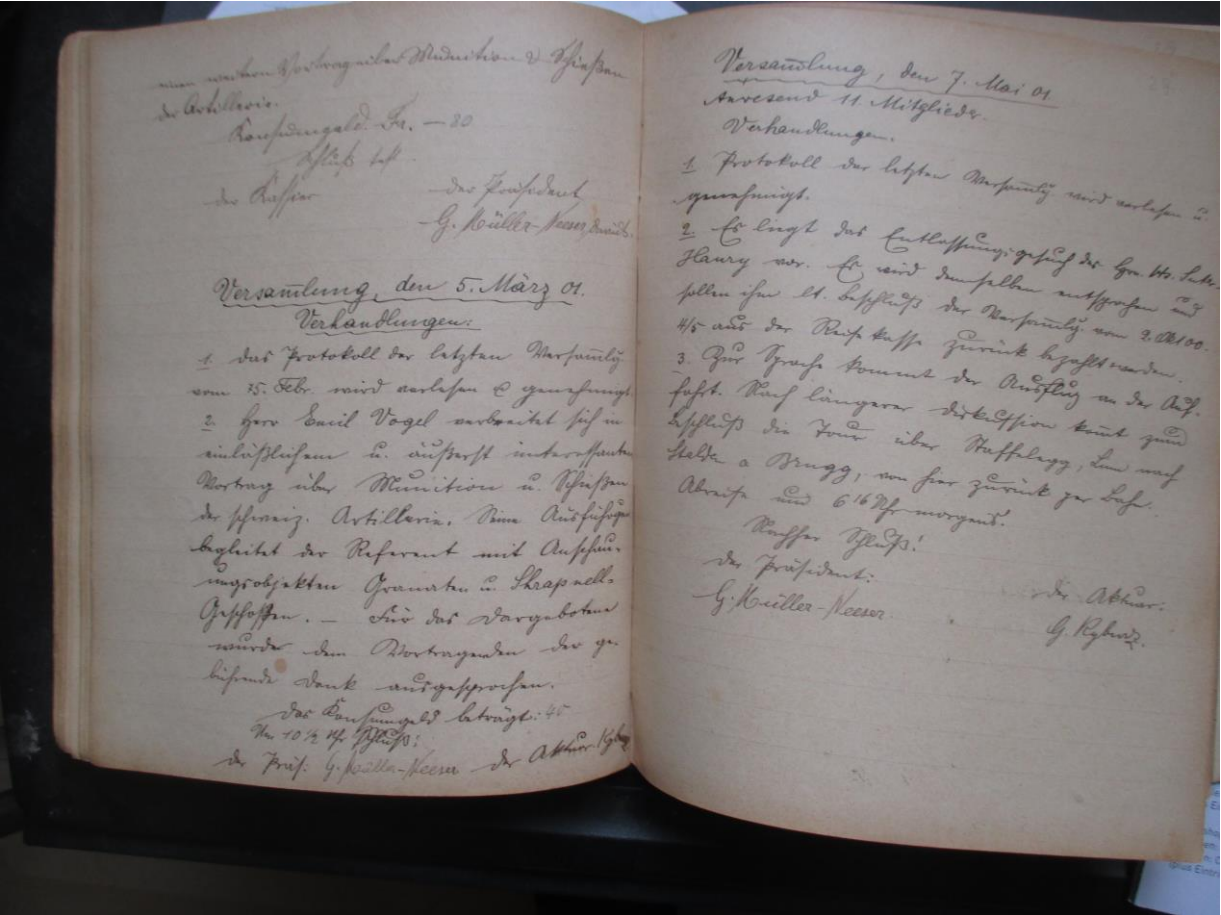 einen weitern Vortrag über Munition & Schießen
der Artillerie.
Konsumgeld. Fr. — 80
Schluß
der Kassier der Präsident
G. Müller-Neeser
Versam̄lung, den 5. März 01.
Verhandlungen:
1. Das Protokoll der letzten Versam̄lg
vom 15. Febr. wird verlesen & genehmigt.
2. Herr Emil Vogel verbreitet sich in
einläßlichem u. äußerst interessanten
Vortrag über Munition u. Schießen
der schweiz. Artillerie. Seine Ausführgen
begleitet der Referent mit Anschau-
ungsobjekten Granaten u. Shrapnell-
Geschossen. — Für das Dargebotene
wurde dem Vortragenden der ge-
bührende Dank ausgesprochen.
Das Konsumgeld beträgt: 40
Um 10 ½ Uhr Schluß!
der Präs: G. Müller-Neeser der Aktuar Kyburz
Versam̄lung, den 7. Mai 01
Anwesend 11 Mitglieder.
Verhandlungen.
1. Protokoll der letzten Versam̄lg. wird verlesen u.
genehmigt.
2. Es liegt das Entlassungsgesuch des Hrn.
Haury vor. Es wird demselben entsprochen und
sollen ihm lt. Beschluß der Versam̄lg vom 2. Okt 00.
4/5 aus der Reisekasse zurück bezahlt werden.
3. Zur Sprache kommt der Ausflug an der Auf-
fahrt. Nach längerer Diskussion kom̄t zum
Beschluß die Tour über Staffelegg, Linn nach
Brugg, von hier zurück per Bahn.
Abreise um 6 16 Uhr morgens.
Nachher Schluß!
Der Präsident: Der Aktuar.
G. Müller-Neeser G. Kyburz.